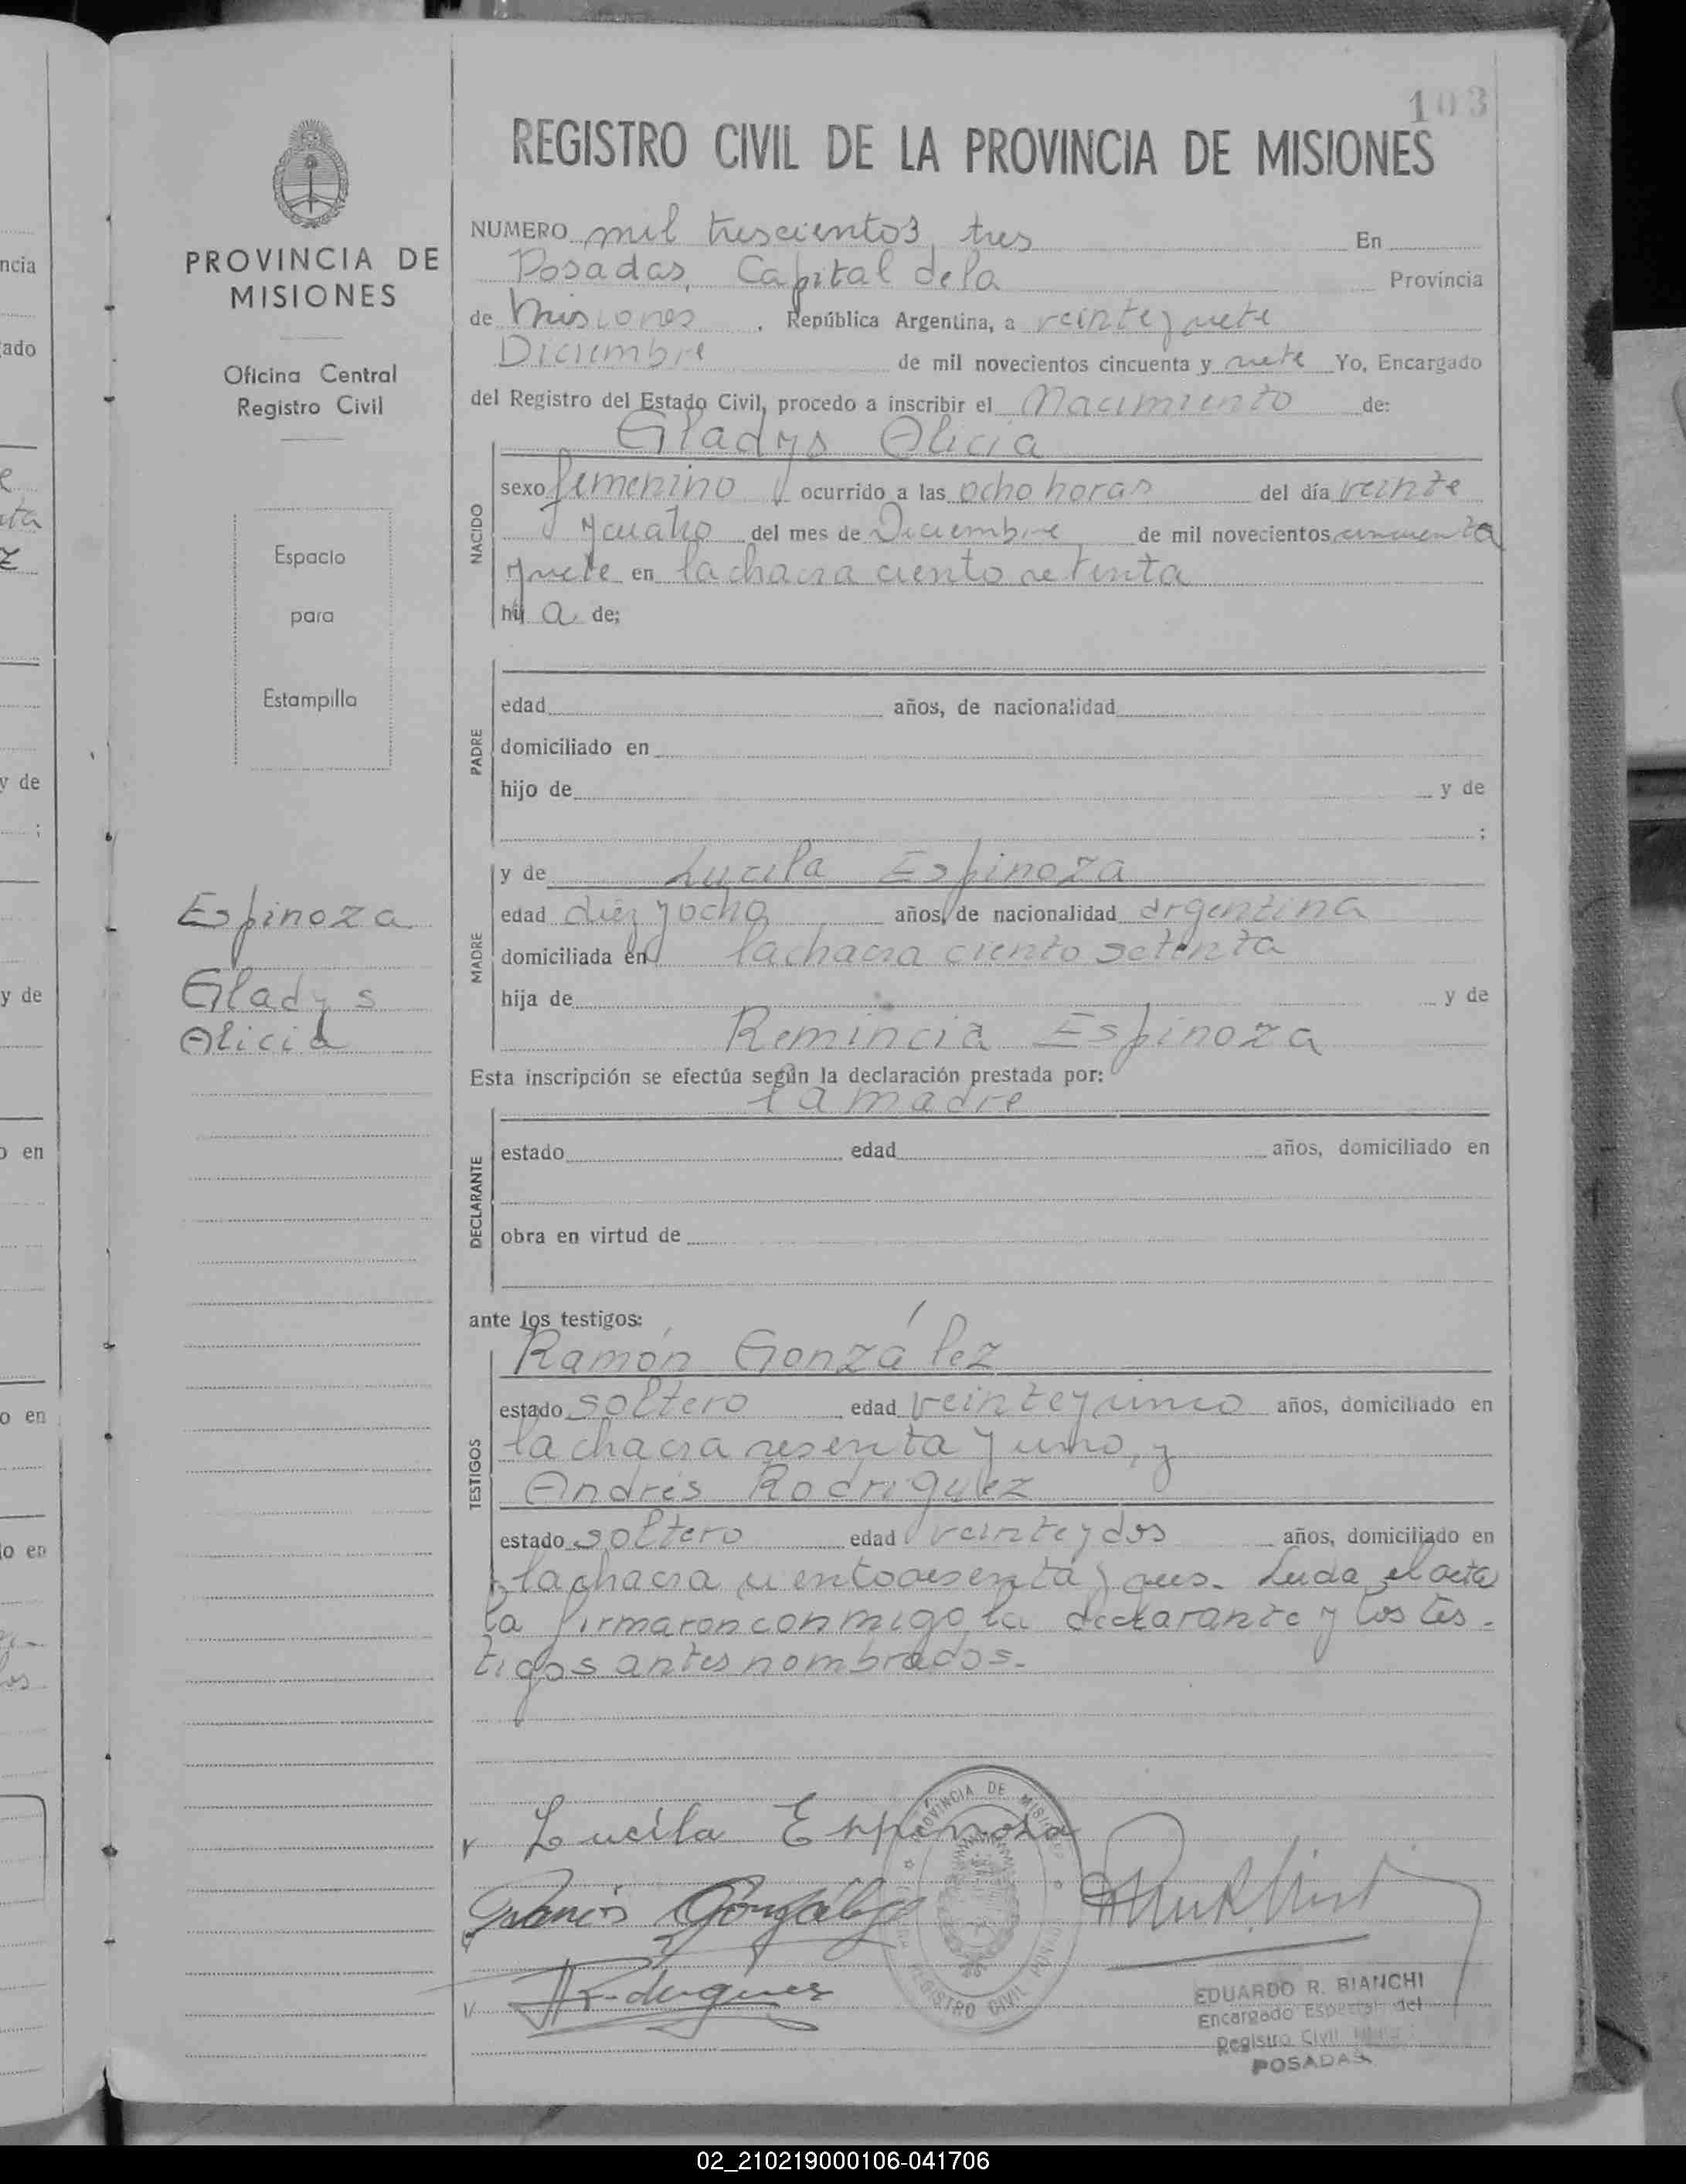 103
REGISTRO CIVIL DE LA PROVINCIA DE MISIONES
PROVINCIA DE
MISIONES
Oficina Central
Registro Civil
Espacio
para
Estampilla
Espinoza
Gladys
Alicia
NUMERO mil trescientos tres En
Posadas, Capital de la Provincia
de Misiones. República Argentina, a veinte y siete
Diciembre de mil novecientos cincuenta y siete Yo, Encargado
del Registro del Estado Civil, procedo a inscribir el Nacimiento de:
Gladys Alicia
NACIDO
sexo femenino ocurrido a las ocho horas del día veinte
y cuatro del mes de Diciembre de mil novecientos cincuenta
y siete en la chacra ciento setenta
hij a de;
PADRE
edad años, de nacionalidad
domiciliado en
hijo de y de
;
MADRE
y de Lucila Espinoza
edad diez y ocho años, de nacionalidad argentina
domiciliada en la chacra ciento setenta
hija de y de
Remincia Espinoza
Esta inscripción se efectúa según la declaración prestada por:
la madre
DECLARANTE
estado edad años, domiciliado en
obra en virtud de
ante los testigos:
TESTIGOS
Ramón González
estado soltero edad veinte y cinco años, domiciliado en
la chacra sesenta y uno, y
Andrés Rodriguez
estado soltero edad veinte y dos años, domiciliado en
la chacra ciento sesenta y seis. Leida el acta
la firmaron conmigo la declarante y los tes-
tigos antes nombrados.-
Lucila Espinosa
Ramón González
A Rodrigues
PROVINCIA DE MISIONES
REGISTRO CIVIL
EDUARDO R. BIANCHI
Encargado Especial del
Registro Civil
POSADAS
ncia
ado
y de
y de
o en
o en
lo en
02_210219000106-041706